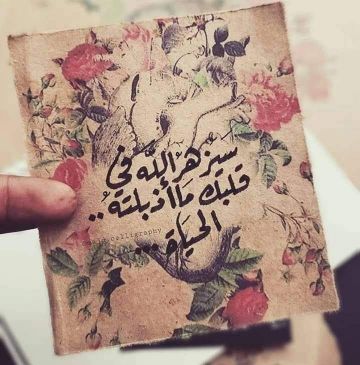 سيزهرُ اللّٰه في
قلبك مَا أذبلتهُ ..
الحيَاة ..
calligraphy